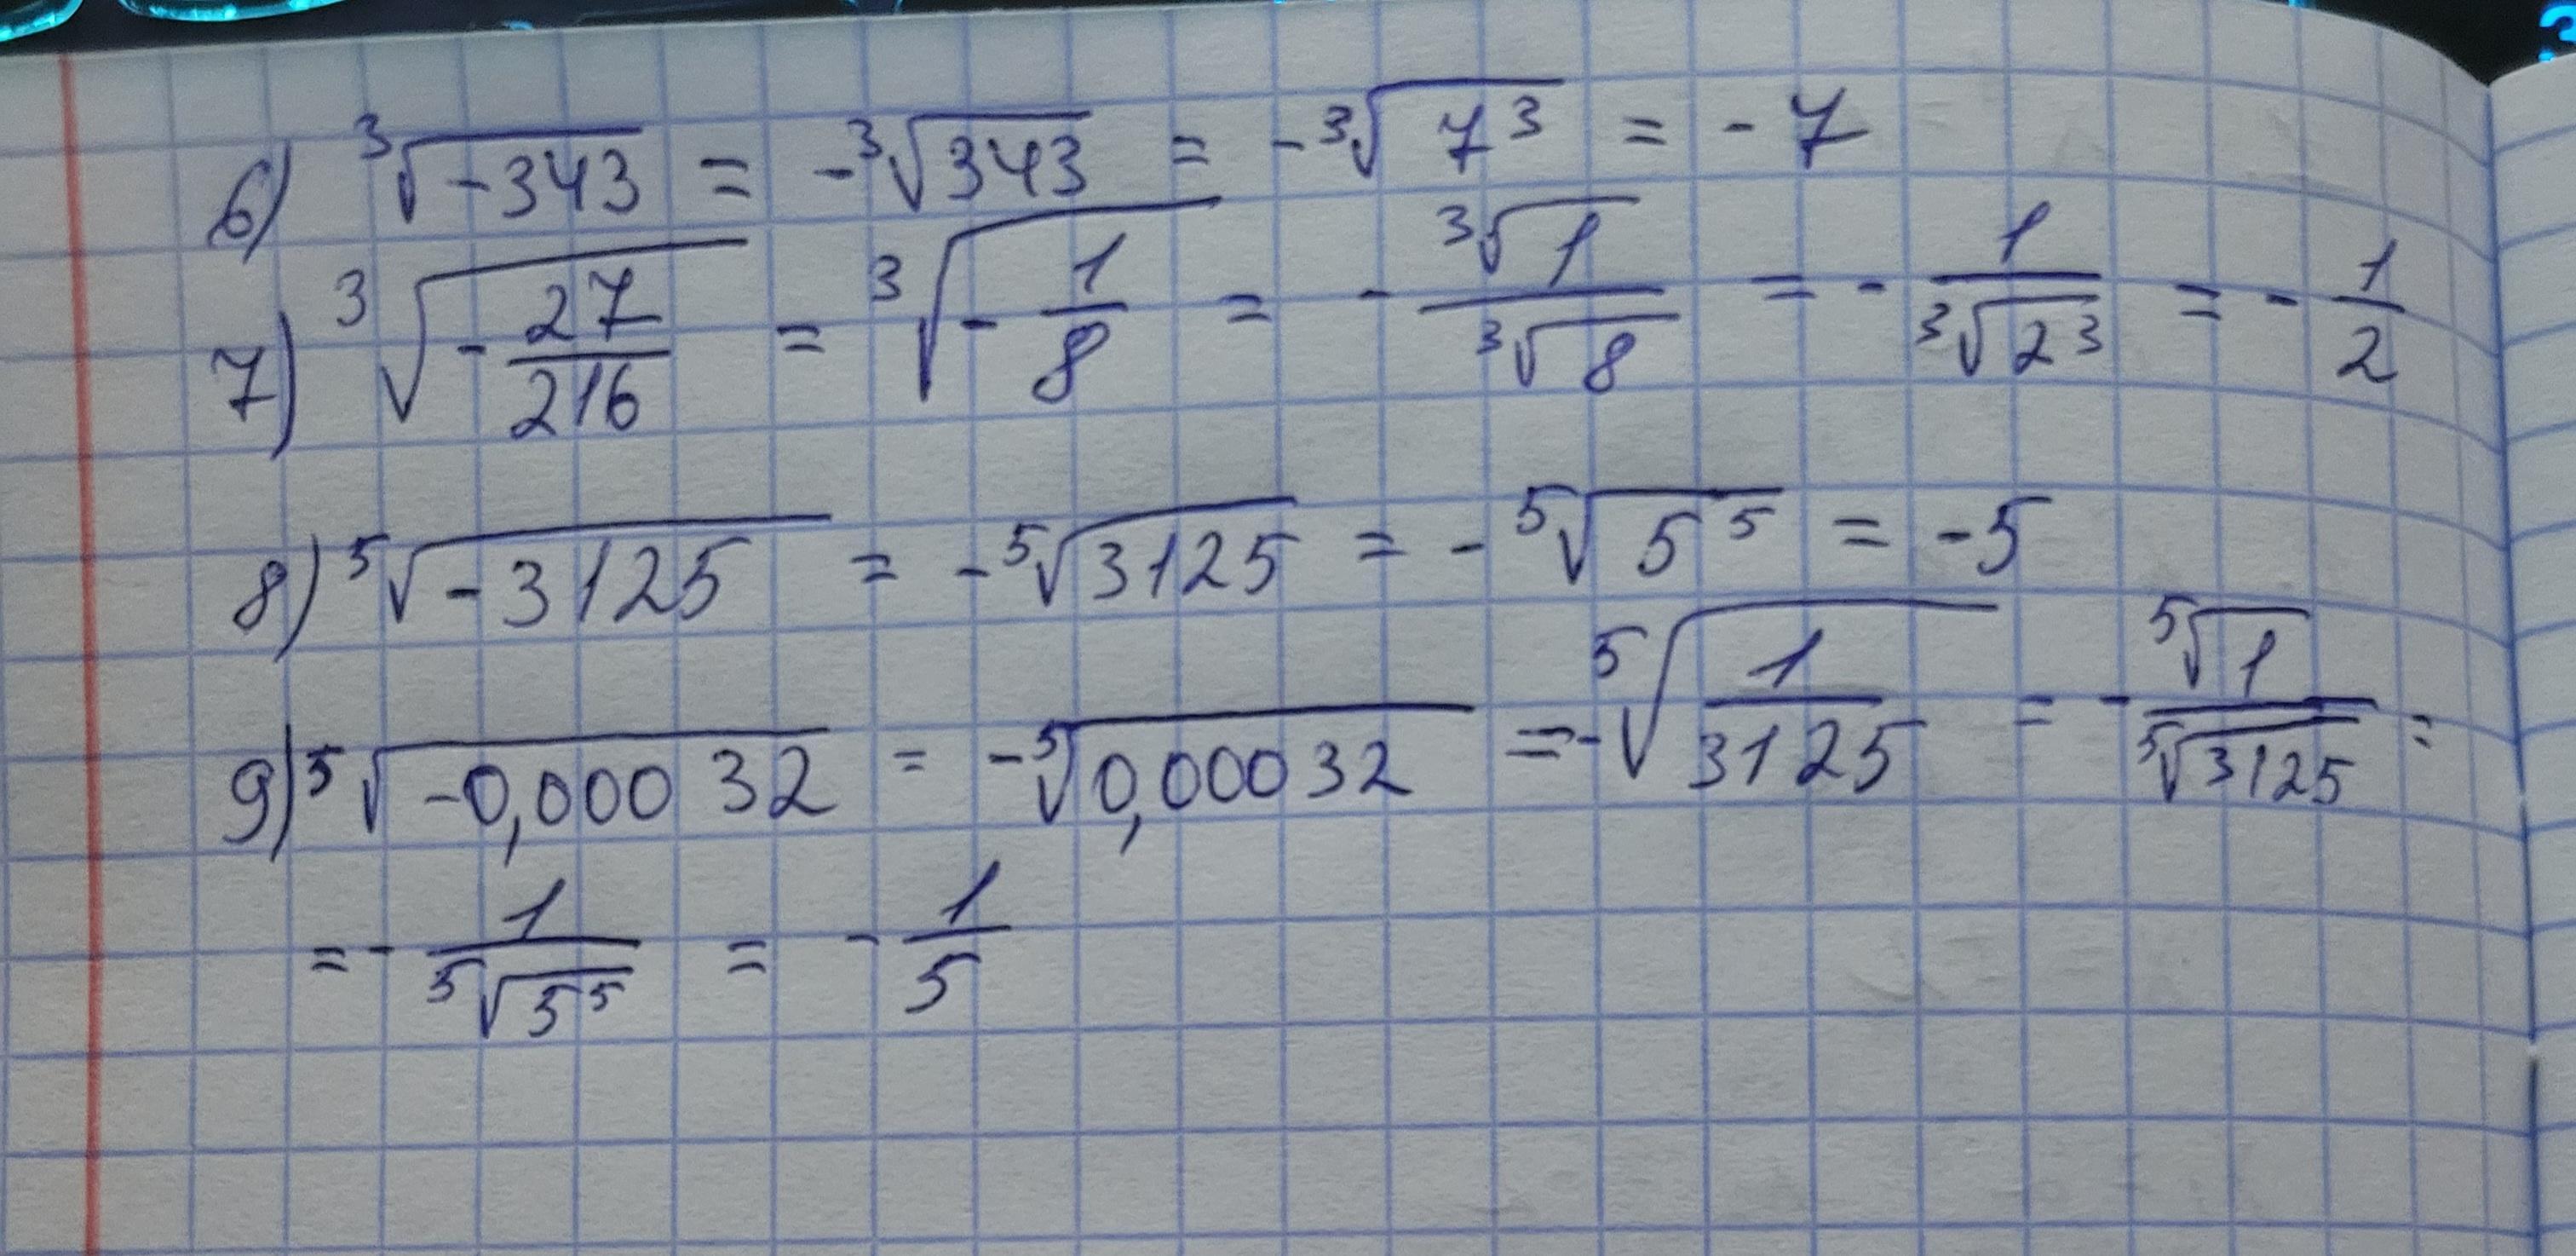 6) ³√-343 = -³√343 = -³√7³ = -7
7) ³√-27/216 = ³√-1/8 = -³√1/³√8 = -1/³√2³ = -1/2
8) ⁵√-3125 = -⁵√3125 = -⁵√5⁵ = -5
9) ⁵√-0,00032 = -⁵√0,00032 = -⁵√1/3125 = -⁵√1/⁵√3125 =
= -1/⁵√5⁵ = -1/5